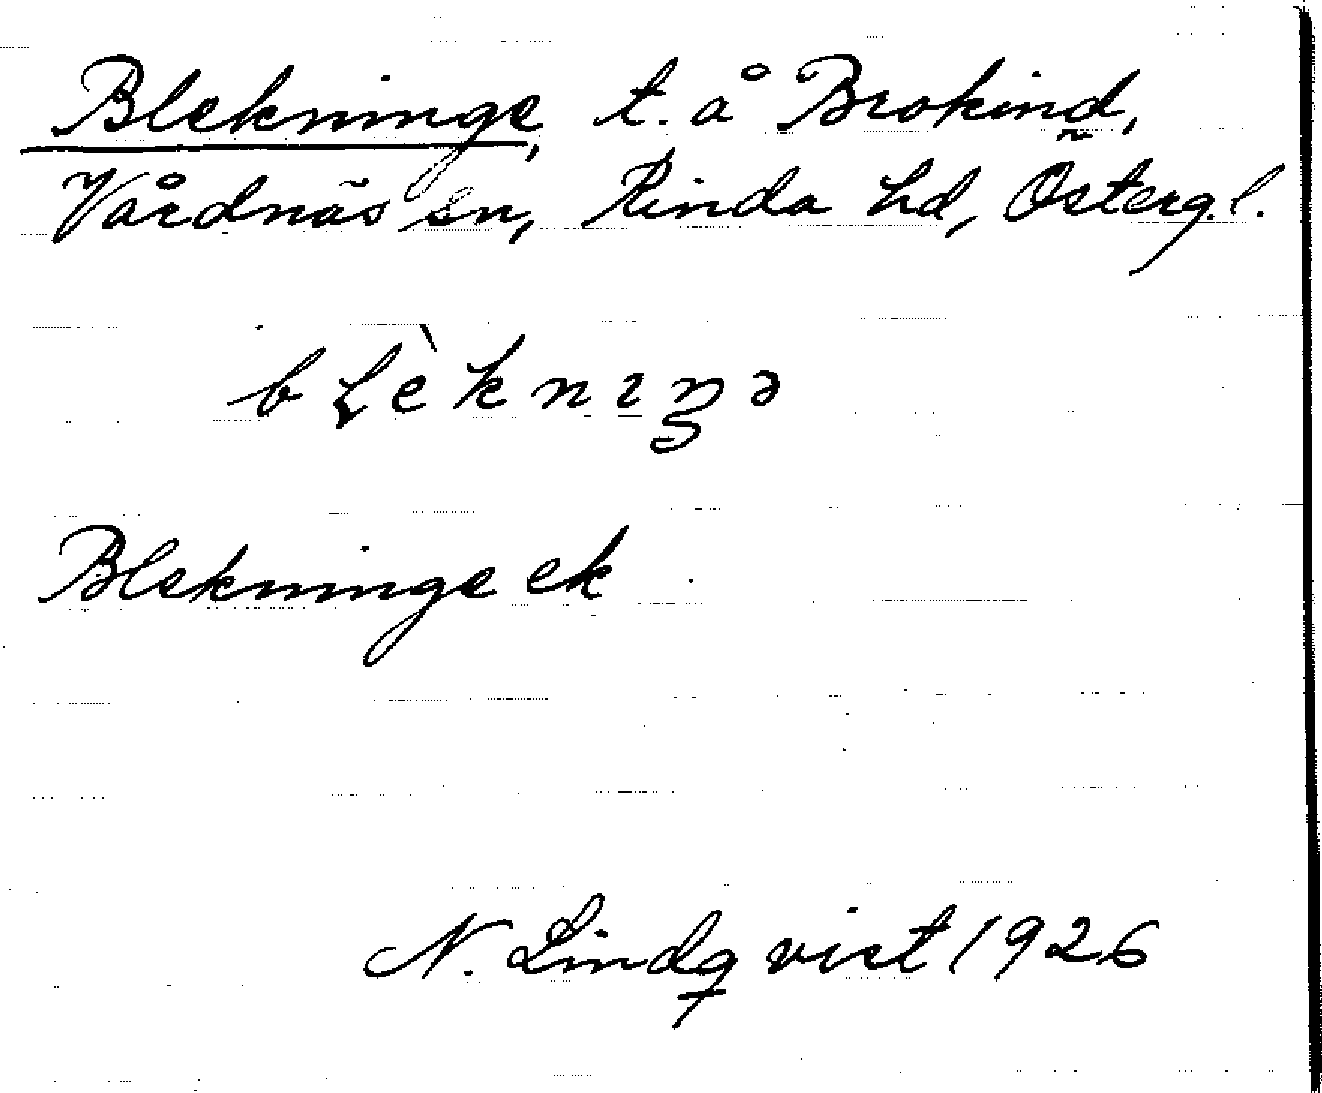 Blekninge, t. å Brokind,
Vårdnäs sn, Kinda hd, Östergl.
blèknıŋə
Blekninge ek
N. Lindqvist 1926